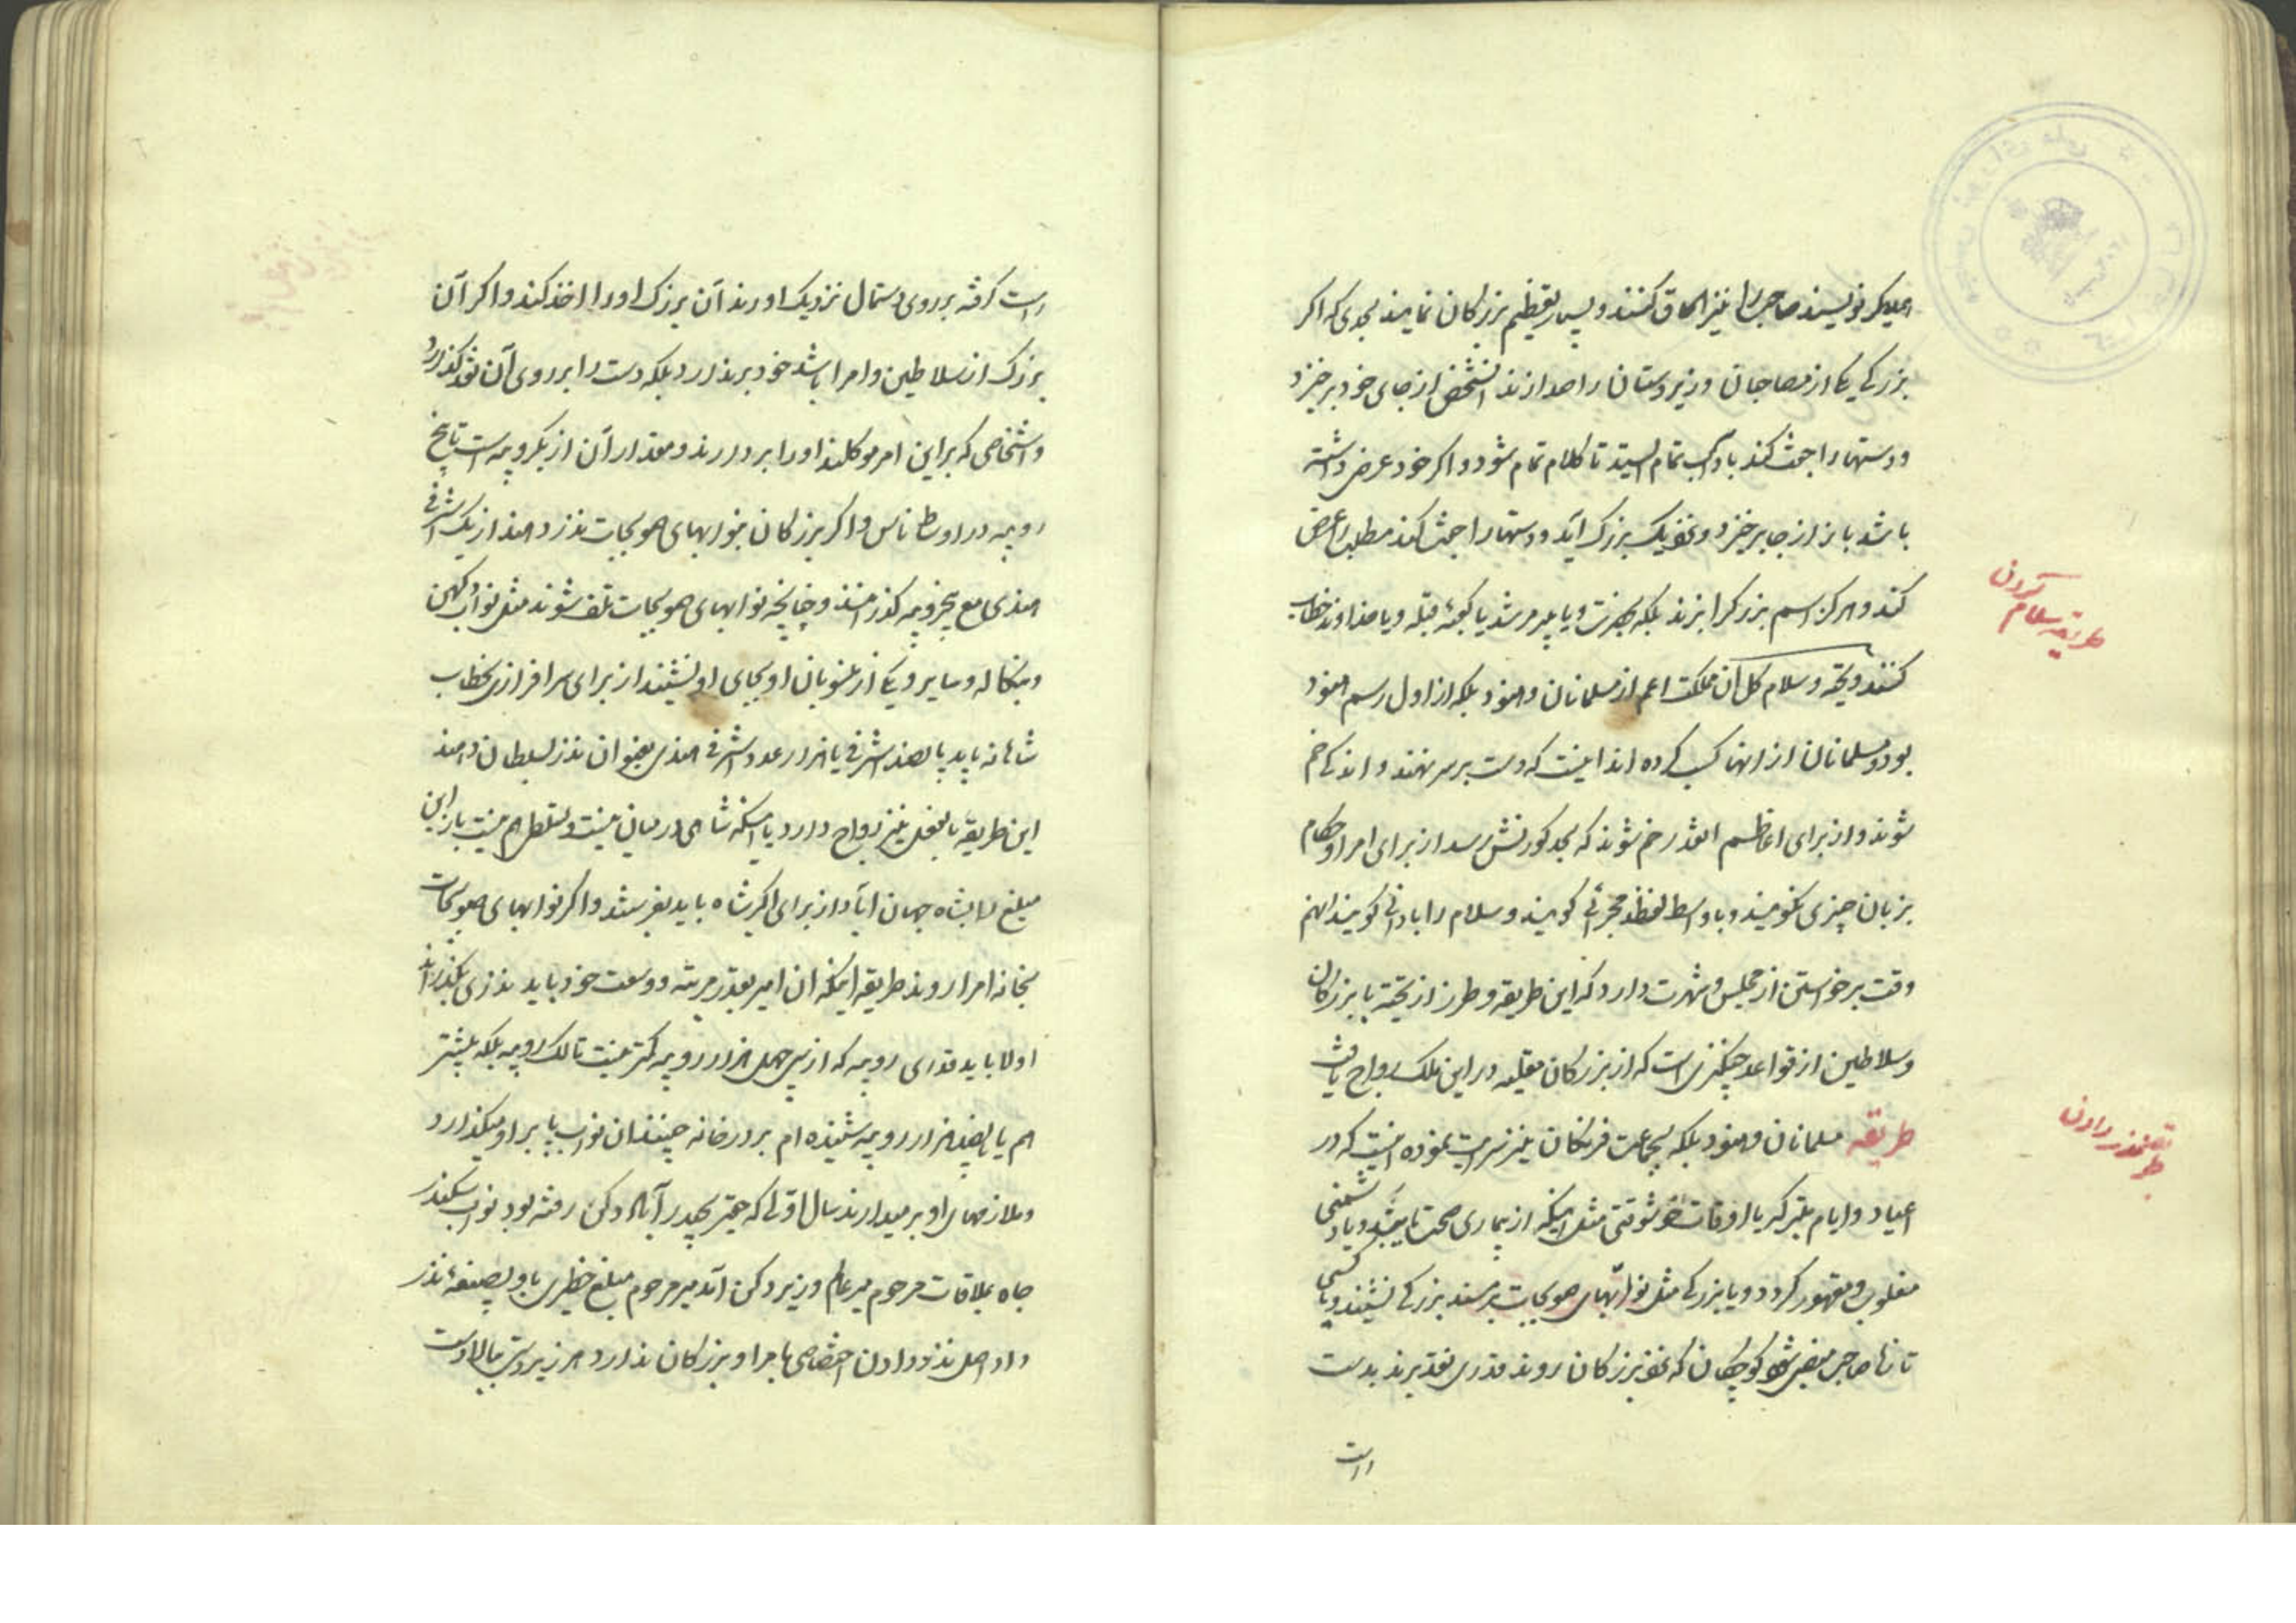 بهمدیگر نویسند صاحب را نیز الحاق کنند و بسیار تعظیم بزرگان نمایند بحدی که اکر
بزرکی یکی از مصاحبان و زیردستان را صدا زند آنشخص از جای خود برخیزد
و دستها را جفت کند با ادب تمام ایستد تا کلام تمام شود و اکر خود عرض داشته
باشد باز از جا برخیزد و نزدیک بزرک آید و دستها را جفت کند مطلب را عرض
کند و هرکز اسم بزرک را نبرند بلکه بحضرت و یا پیر مرشد یا کعبه قبله و یا خداوند خطاب
طریقه سلام کردن
کنند و تحیه و سلام کل آن مملکت اعم از مسلمانان و هنود بلکه از اول رسم هنود
بود و مسلمانان از انها کسب کرده اند اینست که دست بر سر نهند و اندکی خم
شوند و از برای اعاظم انقدر خم شوند که بحد کورنش رسد از برای امرا و حکام
بزبان چیزی نکویند و با واسط لفظ مجرئی کویند و سلام را با ادانی کویند انهم
وقت برخواستن از مجلس و شهرت دارد که این طریقه و طرز از تحیه با بزرکان
و سلاطین از قواعد چنکیزی است که از بزرکان مغلیه در این ملک رواج یافت
طریقه مسلمانان و هنود بلکه بجماعت فرنکان نیز سرایت نموده اینست که در
طریقه نذر دادن
اعیاد و ایام متبرکه یا اوقات خوشوقتی مثل اینکه از بیماری صحت یابند و یا دشمنی
مغلوب و مقهور کردد و یا بزرکی مثل نوابهای صوبجات بر مسند بزرکی نشیند و یا کسی
تازه صاحب منصبی شود کوچکان که نزد بزرکان روند قدری نقد برند بدست
راست
راست کرفته بر روی دستمال نزدیک اورند آن بزرک اورا اخذ کند و اکر آن
بزرک از سلاطین و امرا باشد خود برندارد بلکه دست را بر روی آن نقد کذارد
و اشخاصی که بر این امر موکلند اورا بردارند و مقدار آن از یکروپیه است تا پنج
روپیه در اوسط ناس و اکر بزرکان بنوابهای صوبجات نذر دهند از یک اشرفی
هندی مع پنجروپیه کذرانند و چنانچه نوابهای صوبجات تلف شوند مثل نواب دکهن
و بنکاله و سایر و یکی از منسوبان او بجای او نشیند از برای سرافرازی بخطاب
شاهانه باید پانصد اشرفی یا هزار عدد اشرفی هندی بعنوان نذر بسلطان دهند
این طریقه بالفعل نیز رواج دارد با اینکه شاهی در میان نیست و تسلطی هم نیست باز این
مبلغ را بشاه جهان آباد از برای اکبر شاه باید بفرستند و اکر نوابهای صوبجات
بخانه امرا روند طریقه اینکه ان امیر بقدر مرتبه و وسعت خود باید نذری بکذراند
اولا باید قدری روپیه که از سی چهل هزار روپیه کمتر نیست تا لک روپیه بلکه بیشتر
هم تا پانصد هزار روپیه شنیده ام بر در خانه چینند ان نواب پا بر او میکذارد
و ملازمهای او برمیدارند سال اولی که حقیر بحیدر آباد دکن رفته بود نواب سکندر
جاه بملاقات مرحوم میر عالم وزیر دکن آمد میر مرحوم مبلغ خطیری باو بصیغه نذر
داد اصل نذر دادن اختصاصی بامرا و بزرکان ندارد هر زیردستی ببالادست